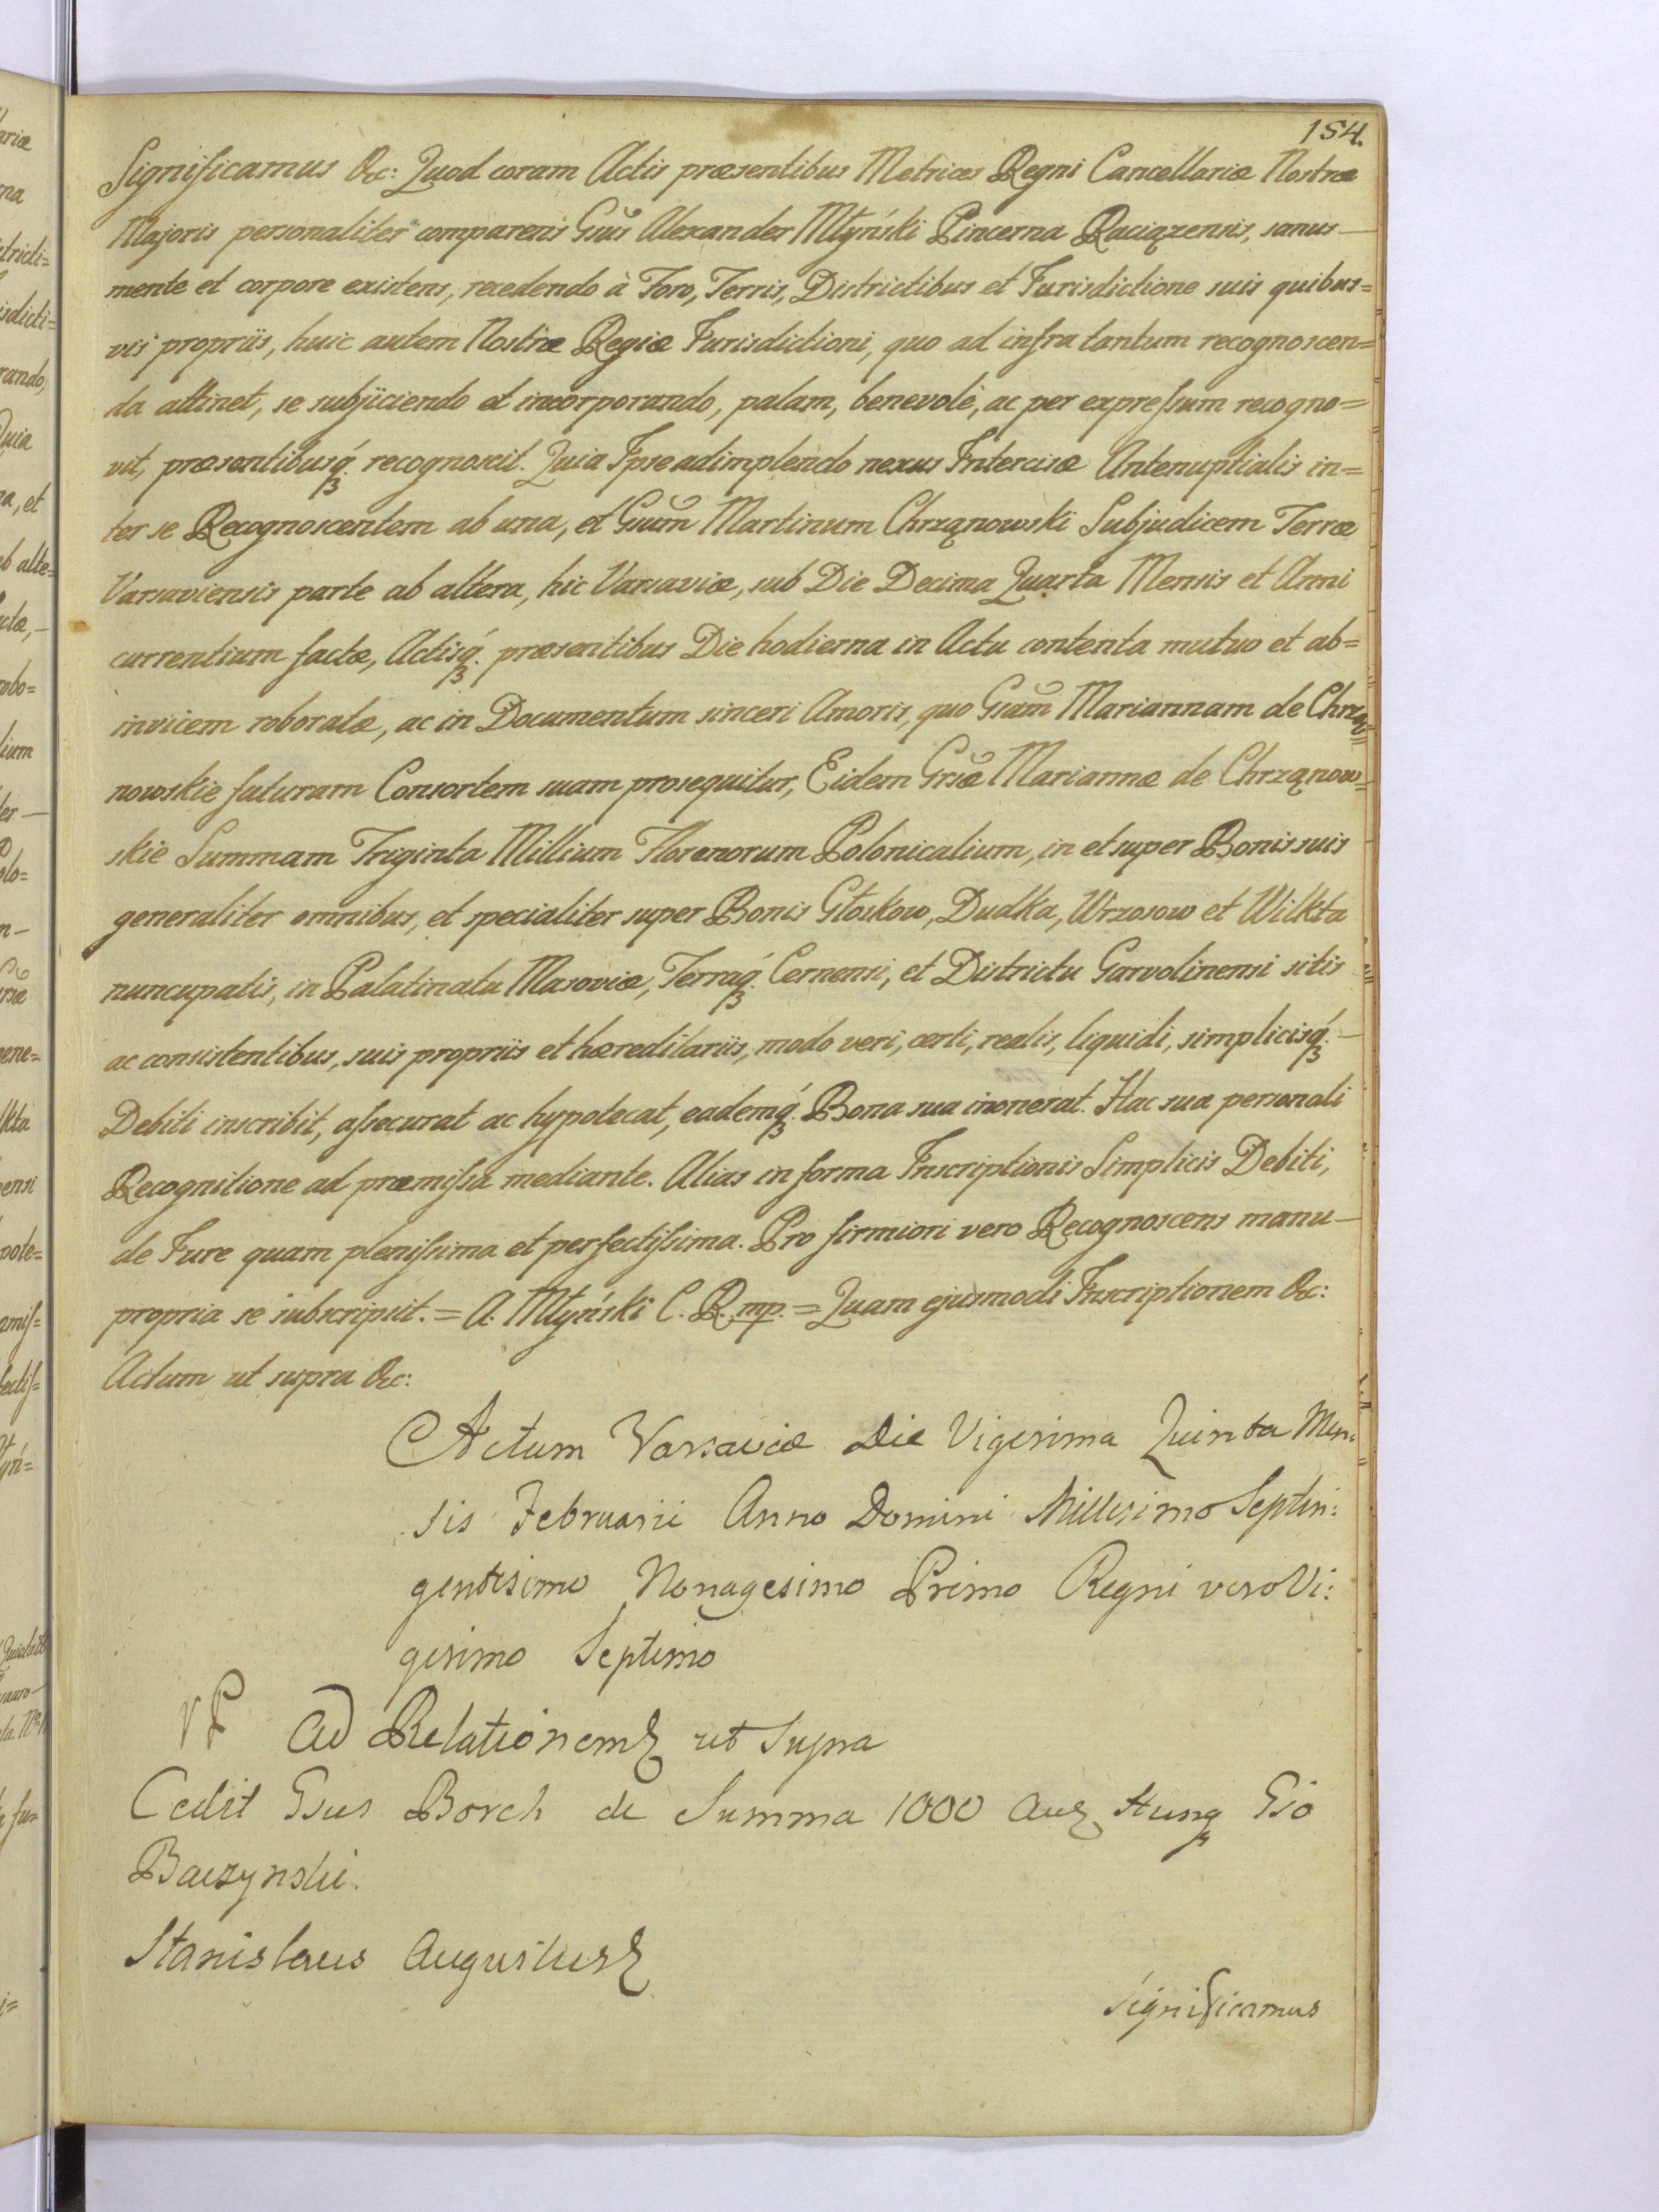 154.
Significamus &c: Quod coram Actis præsentibus Metrices Regni Cancellariæ Nostræ
Majoris personaliter comparens Gsus Alexander Młyński Pincerna Raciązensis, sanus —
mente et corpore existens, recedendo à Foro, Terris, Districtibus et Jurisdictione suis quibus=
vis propriis, huic autem Nostræ Regiæ Jurisdictioni, quo ad infra tantum recognoscen=
da attinet, se subjiciendo et incorporando, palam, benevolè, ac per expressum recogno=
vit, præsentibusq́ʒ recognoscit. Quia Ipse adimplendo nexus Intercisæ Antenuptialis in=
ter se Recognoscentem ab una, et Gsum Martinum Chrząnowski Subjudicem Terræ
Varsaviensis parte ab altera, hic Varsaviæ, sub Die Decima Quarta Mensis et Anni
currentium factæ, Actisq́ʒ præsentibus Die hodierna in Actu contenta mutuo et ab=
invicem roboratæ, ac in Documentum sinceri Amoris, quo Gsam Mariannam de Chrzą=
nowskie futuram Consortem suam prosequitur, Eidem Grsæ Mariannæ de Chrząnow=
skie Summam Triginta Millium Florenorum Polonicalium, in et super Bonis suis
generaliter omnibus, et specialiter super Bonis Głoskow, Dudka, Wrzosow et Wilkta
nuncupatis, in Palatinatu Masoviæ, Terraq́ʒ Cernensi, et Districtu Garvolinensi sitis
ac consistentibus, suis propriis et hæreditariis, modo veri, certi, realis, liquidi, simplicisq́ʒ —
Debiti inscribit, assecurat ac hypotecat, eademq́ʒ Bona sua inonerat. Hac sua personali
Recognitione ad præmissa mediante. Alias in forma Inscriptionis Simplicis Debiti,
de Jure quam plenissima et perfectissima. Pro firmiori vero Recognoscens manu —
propria se subscripsit. = A. Młyński C. R. mp. = Quam ejusmodi Inscriptionem &c:
Actum ut supra &c:
Actum Varsaviæ Die Vigesima Quinta Men:
sis Februarii Anno Domini Millesimo Septin:
gentesimo Nonagesimo Primo Regni vero Vi:
gesimo Septimo
VP Ad Relationem ut Supra
Cedit Gsus Borch de Summa 1000 Aur Hung Gso
Baczynski.
Stanislaus Augustus
Significamus